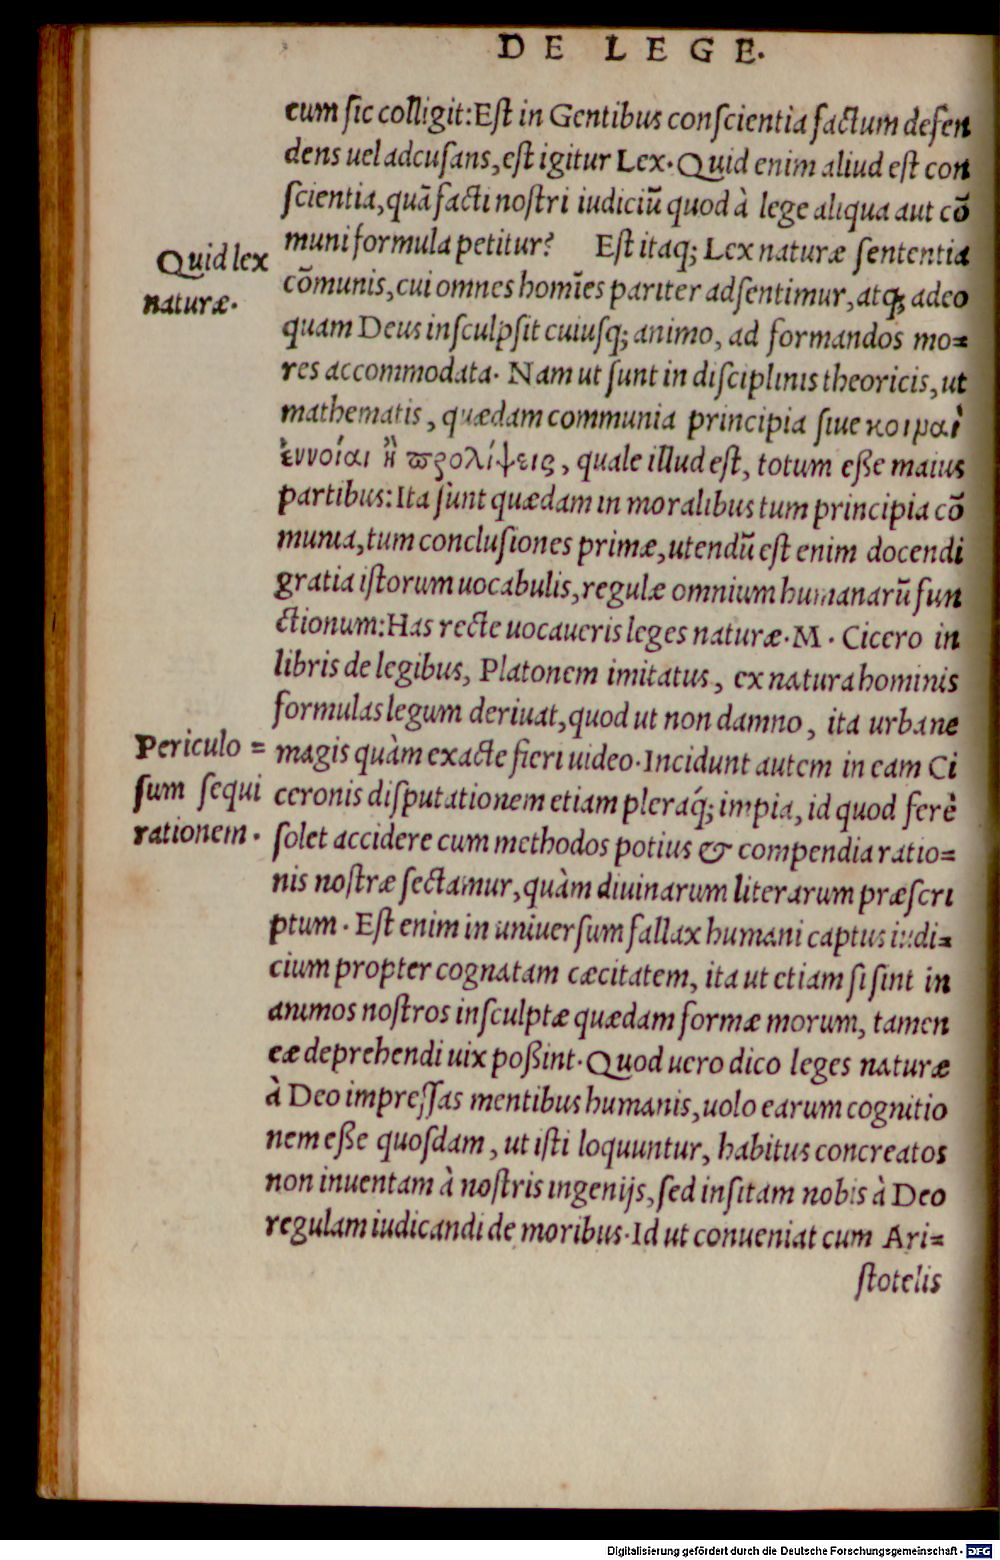 DE LEGE.
cum sic colligit: Est in Gentibus conscientia factum defen
dens uel adcusans, est igitur Lex. Quid enim aliud est con
scientia, quã facti nostri iudiciũ quod à lege aliqua aut cõ
muni formula petitur? Est itaq; Lex naturæ sententia
Quid lex
naturæ.
cõmunis, cui omnes homĩes pariter adsentimur, atq; adeo
quam Deus insculpsit cuiusq; animo, ad formandos mo=
res accommodata. Nam ut sunt in disciplinis theoricis, ut
mathematis, quædam communia principia siue κοιμαὶ
ἐννοίαι ἢ προλίψεις, quale illud est, totum eße maius
partibus: Ita sunt quædam in moralibus tum principia cõ
munia, tum conclusiones primæ, utendũ est enim docendi
gratia istorum uocabulis, regulæ omnium humanarũ fun
ctionum: Has recte uocaueris leges naturæ. M. Cicero in
libris de legibus, Platonem imitatus, ex natura hominis
formulas legum deriuat, quod ut non damno, ita urbane
Periculo=
sum sequi
rationem.
magis quàm exacte fieri uideo. Incidunt autem in eam Ci
ceronis disputationem etiam pleraq́; impia, id quod ferè
solet accidere cum methodos potius & compendia ratio=
nis nostræ sectamur, quàm diuinarum literarum præscri
ptum. Est enim in uniuersum fallax humani captus iudi=
cium propter cognatam cæcitatem, ita ut etiam si sint in
animos nostros insculptæ quædam formæ morum, tamen
eæ deprehendi uix poßint. Quod uero dico leges naturæ
à Deo impressas mentibus humanis, uolo earum cognitio
nem eße quosdam, ut isti loquuntur, habitus concreatos
non inuentam à nostris ingenijs, sed insitam nobis à Deo
regulam iudicandi de moribus. Id ut conueniat cum Ari=
stotelis
Digitalisierung gefördert durch die Deutsche Forschungsgemeinschaft - DFG